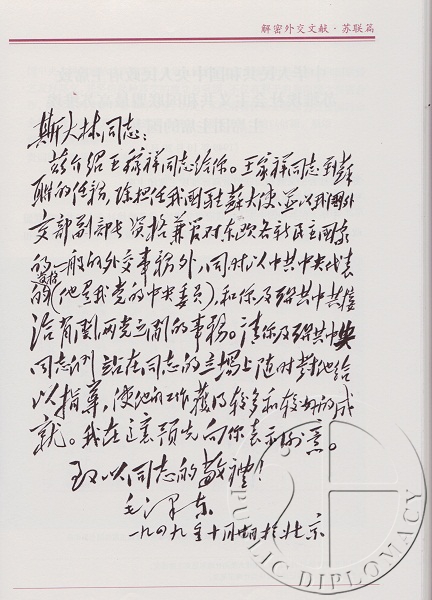 解密外交文献·苏联篇
斯大林同志：
兹介绍王稼祥同志给你。王稼祥同志到苏
联的任务，除担任我国驻苏大使、並以我国外
交部副部长资格兼管对东欧各新民主国家
的一般的外交事務外，同时以中共中央代表
的资格（他是我党的中央委員），和你及联共中央接
洽有関两党之間的事務。请你及联共中央
同志们站在同志的立場上随时對他给
以指導，使他的工作获得较多和较好的成
就。我在這里预先向你表示謝意。
致以同志的敬禮！
毛泽东
一九四九年十月 日於北京
PUBLIC DIPLOMACY